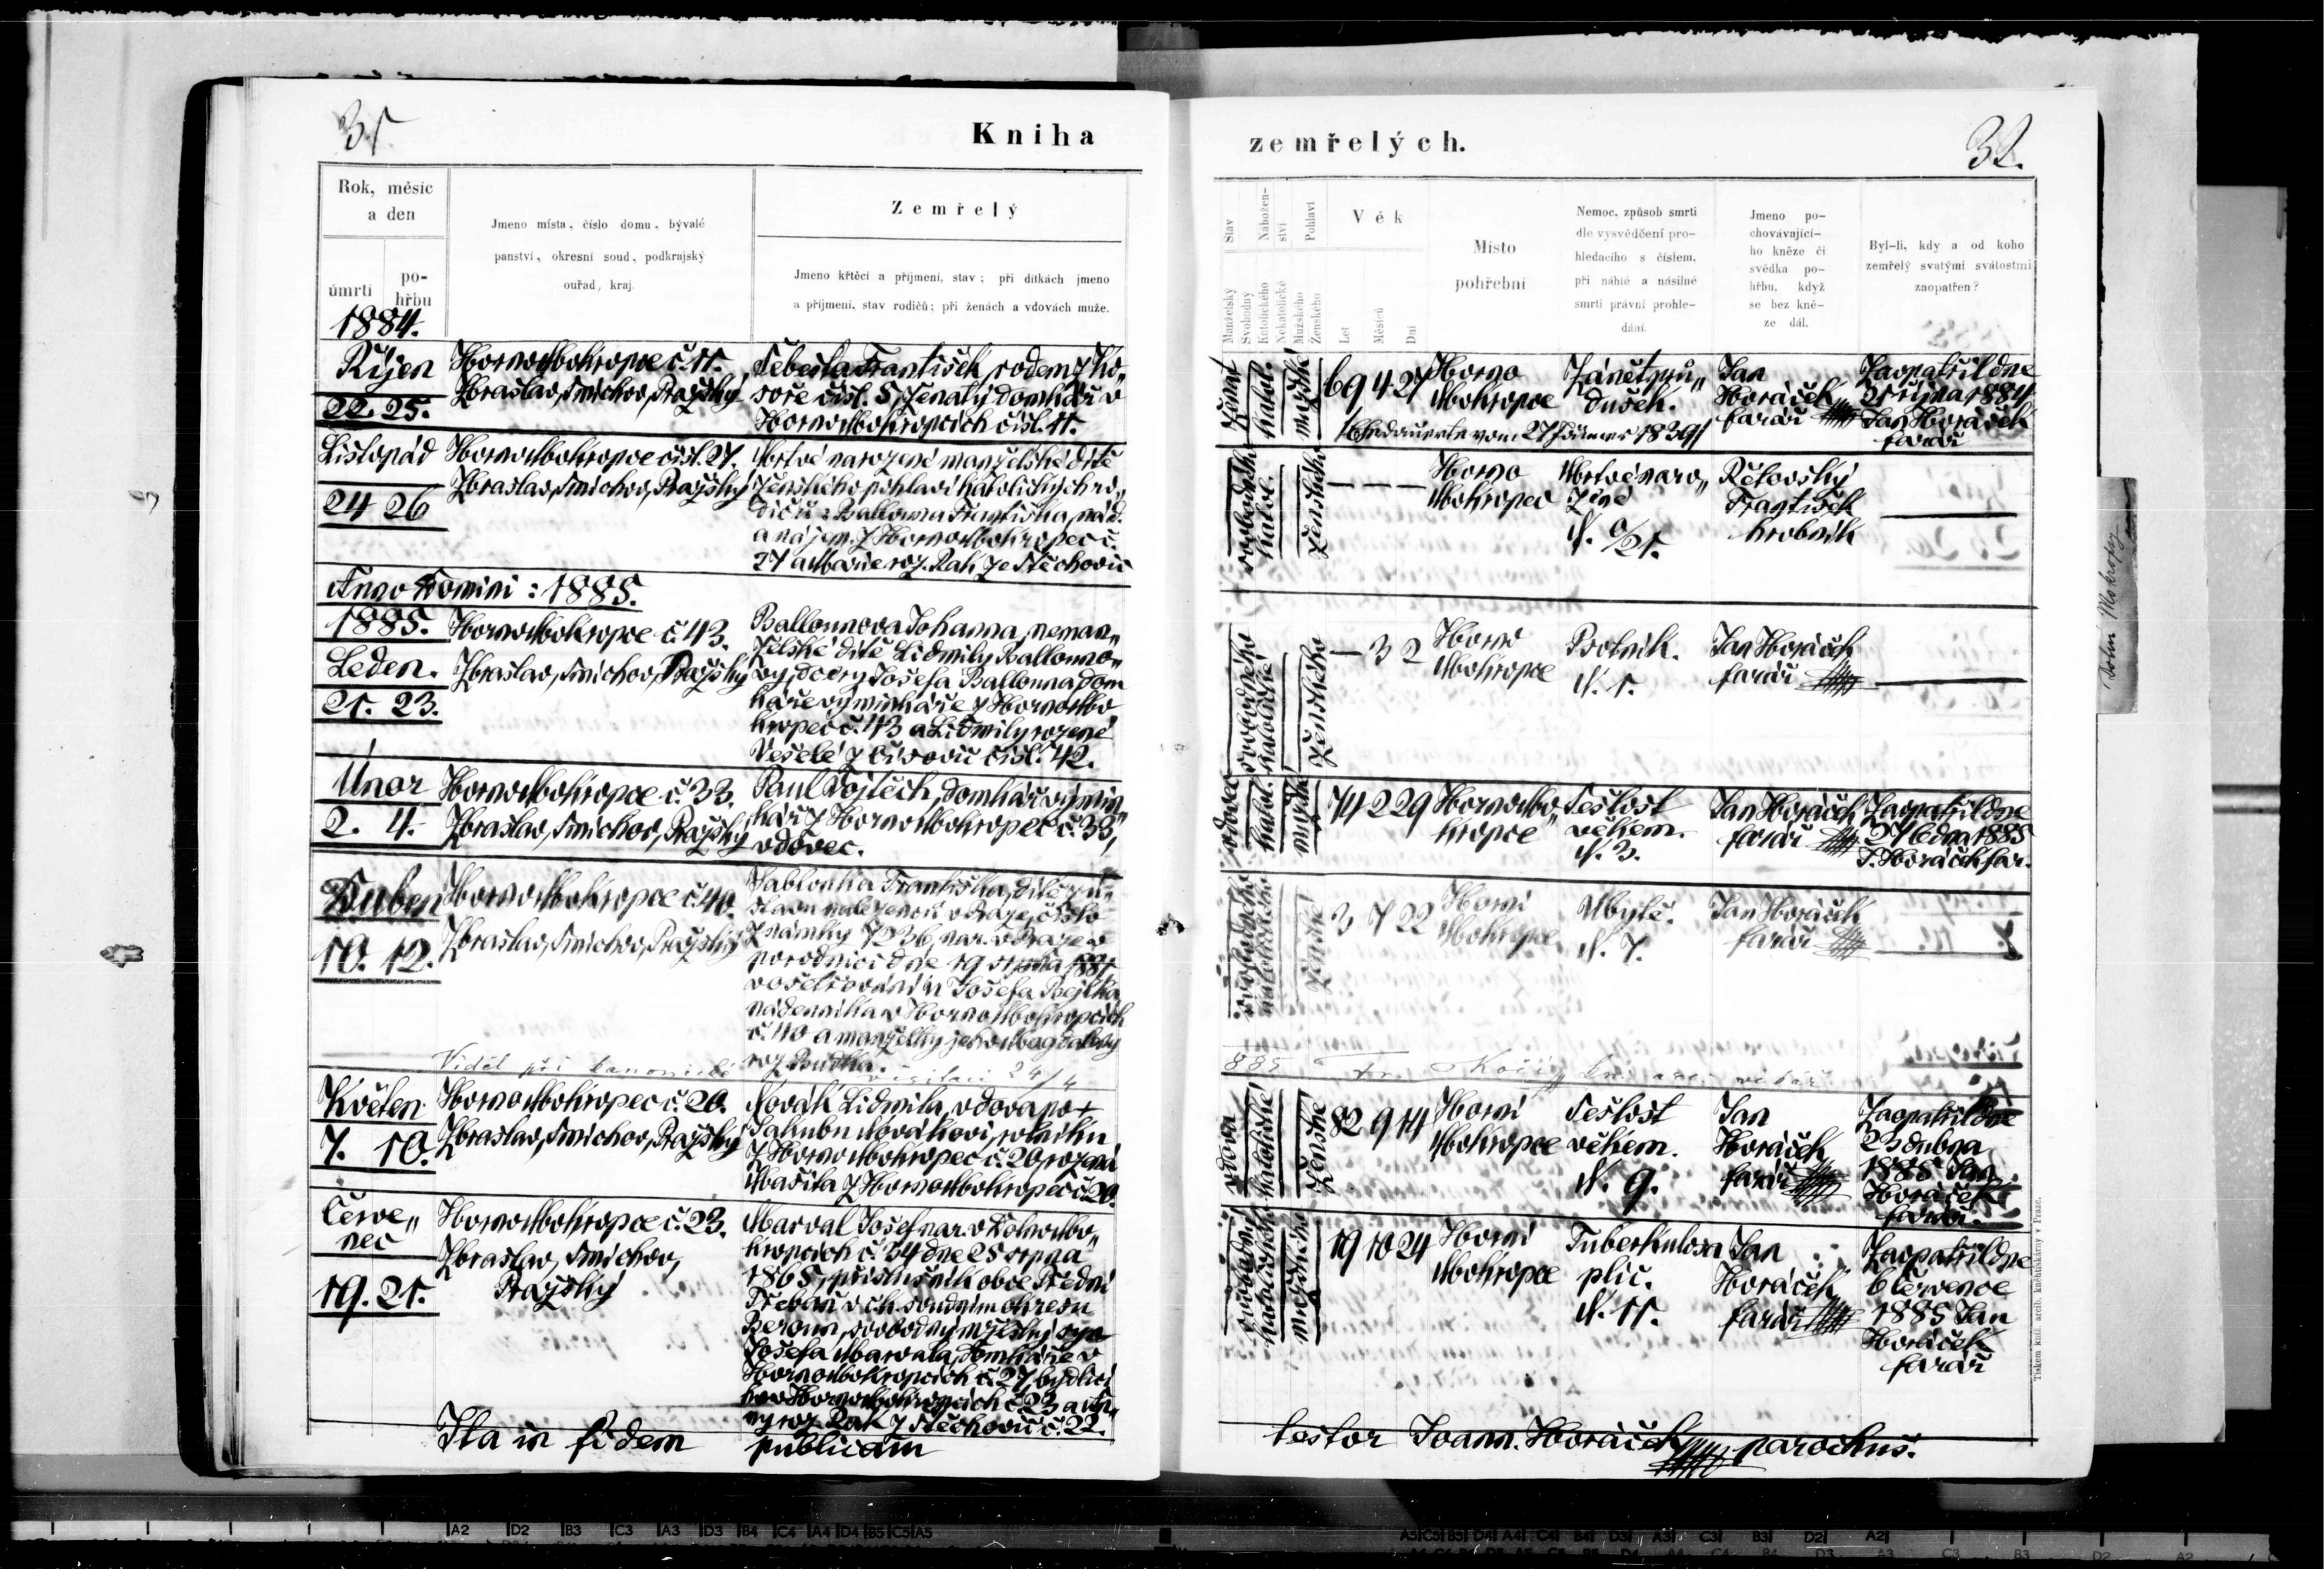 31
Kniha
Rok, měsíc
a den
úmrtí
po-
hřbu
Jmeno místa, číslo domu, bývalé
panství, okresní soud, podkrajský
ouřad, kraj.
Zemřelý
Jmeno křtěcí a příjmení, stav; při dítkách jmeno
a příjmení, stav rodičů; při ženách a vdovách muže.
1884.
Říjen
22. 25.
Hornomokropce č. 11.
Zbraslav, Smíchov, Pražský
Šebesta František, rodem z Ko„
soře čísl. 5, ženatý domkář v
Hornomokropcích čísl. 11.
Listopád
24 26
Hornomokropce čísl. 27.
Zbraslav, Smíchov, Pražský
Mrtvé narozené manželské dítě
ženského pohlaví katolických ro„
dičů: Ballouna Františka, nád.
a nájem. z Hornomokropec č.
27 a Marie roz. Rak ze Štěchovic
Anno Domini: 1885.
1885.
Leden.
21. 23.
Hornomokropce č. 43.
Zbraslav, Smíchov, Pražský
Ballounova Johanna, neman„
želské dítě Lidmily Ballouno„
vy, dcery Josefa Ballouna dom
káře výminkáře z Hornomo
kropec č. 43 a Lidmily rozené
Veselé z Čisovic čísl. 42.
Únor
2. 4.
Hornomokropce č. 33.
Zbraslav, Smíchov, Pražský
Paul Vojtěch, domkář výmin„
kář z Hornomokropec č. 33,
vdovec.
Duben
10. 12.
Hornomokropce č. 40.
Zbraslav, Smíchov, Pražský
Jablonka Františka, dítě z ú-
stavu nalezenců v Praze, číslo
známky 7236, nar. v Praze v
porodnici dne 19 srpna 1881
v ošetřování u Josefa Bejčka
nádenníka v Hornomokropcích
č. 40 a manželky jeho Magdaleny
roz.
Viděl při kanonické visitaci 24/4
Květen
7. 10.
Hornomokropec č. 20.
Zbraslav, Smíchov, Pražský
Novák Lidmila, vdova po +
Jakubu Novákovi, rolníku
z Hornomokropec č. 20, rozená
Mašita z Hornomokropec č. 20.
Červe„
nec
19. 21.
Hornomokropce č. 23.
Zbraslav, Smíchov,
Pražský
Marval Josef nar. v Dolnomo„
kropcích č. 34 dne 25 srpna
1865, příslušník obce Střední
Třebaň v ck. soudním okresu
Beroun, svobodný manželský syn
Josefa Marvala, domkáře v
Hornomokropcích č. 27, bydlící
ho v Hornomokropcích č. 23 a An„
ny roz. Rak z Štěchovic č. 22.
Ita in fidem publicam
zemřelých.
32.
Stav
Manželský
Svobodný
Nábožen-
ství
Katolického
Nekatolické
Pohlaví
Mužského
Ženského
Věk
Let
Měsíců
Dní
Místo
pohřební
Nemoc, způsob smrti
dle vysvědčení pro-
hledacího s číslem,
při náhlé a násilné
smrti právní prohle-
dání.
Jmeno po-
chovávající-
ho kněze či
svědka po-
hřbu, když
se bez kně-
ze dál.
Byl-li, kdy a od koho
zemřelý svatými svátostmi
zaopatřen?
ženat
katol.
mužské
69 4 27
Horno
Mokropce
Zánět průˮ
dušek.
Jan
Horáček
farář
Zaopatřil dne
21 října 1884
Jan Horáček
farář
vom 27 Jänner 1839
svobodného
katol.
ženského
— — —
Horno
Mokropec
Mrtvé naro„
zené
N. a/21.
Řetovský
František
hrobník
svobodného
katolické
ženského
— 3 2
Horno
Mokropce
Psotník.
N. 1.
Jan Horáček
farář
vdovec
katol.
mužské
74 2 29
Hornomo„
kropce
Sešlost
věkem.
N. 3.
Jan Horáček
farář
Zaopatřil dne
27 ledna 1885
J. Horáček far.
svobodného
katolického
ženské
3 7 22
Horní
Mokropce
Úbytě.
N. 7.
Jan Horáček
farář
885 Fr. Kočí
vdova
katolické
ženské
82 9 14
Horní
Mokropce
Sešlost
věkem.
N. 9.
Jan
Horáček
farář
Zaopatřil dne
23 dubna
1885 Jan
Horáček
farář.
svobodný
katolického
mužského
19 10 24
Horní
Mokropce
Tuberkulosa
plic.
N. 11.
Jan
Horáček
farář
Zaopatřil dne
6 července
1885 Jan
Horáček
farář
testor Joann. Horáček parochus.
Tiskem kníž. arcib. knihtiskárny v Praze.
Dolní Mokropsy
A2 D2 B3 C3 A3 D3 B4 C4 A4 D4 B5 C5 A5
A5 C5 B5 D4 A4 C4 B4 D3 A3 C3 B3 D2 A2